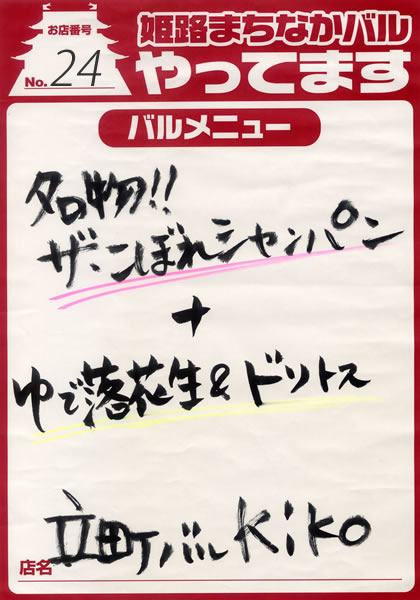 お店番号
No. 24
姫路まちなかバル
やってます
バルメニュー
名物!!
ザ・こぼれシャンパン
+
ゆで落花生&ドリトス
店名 立町バル KiKo